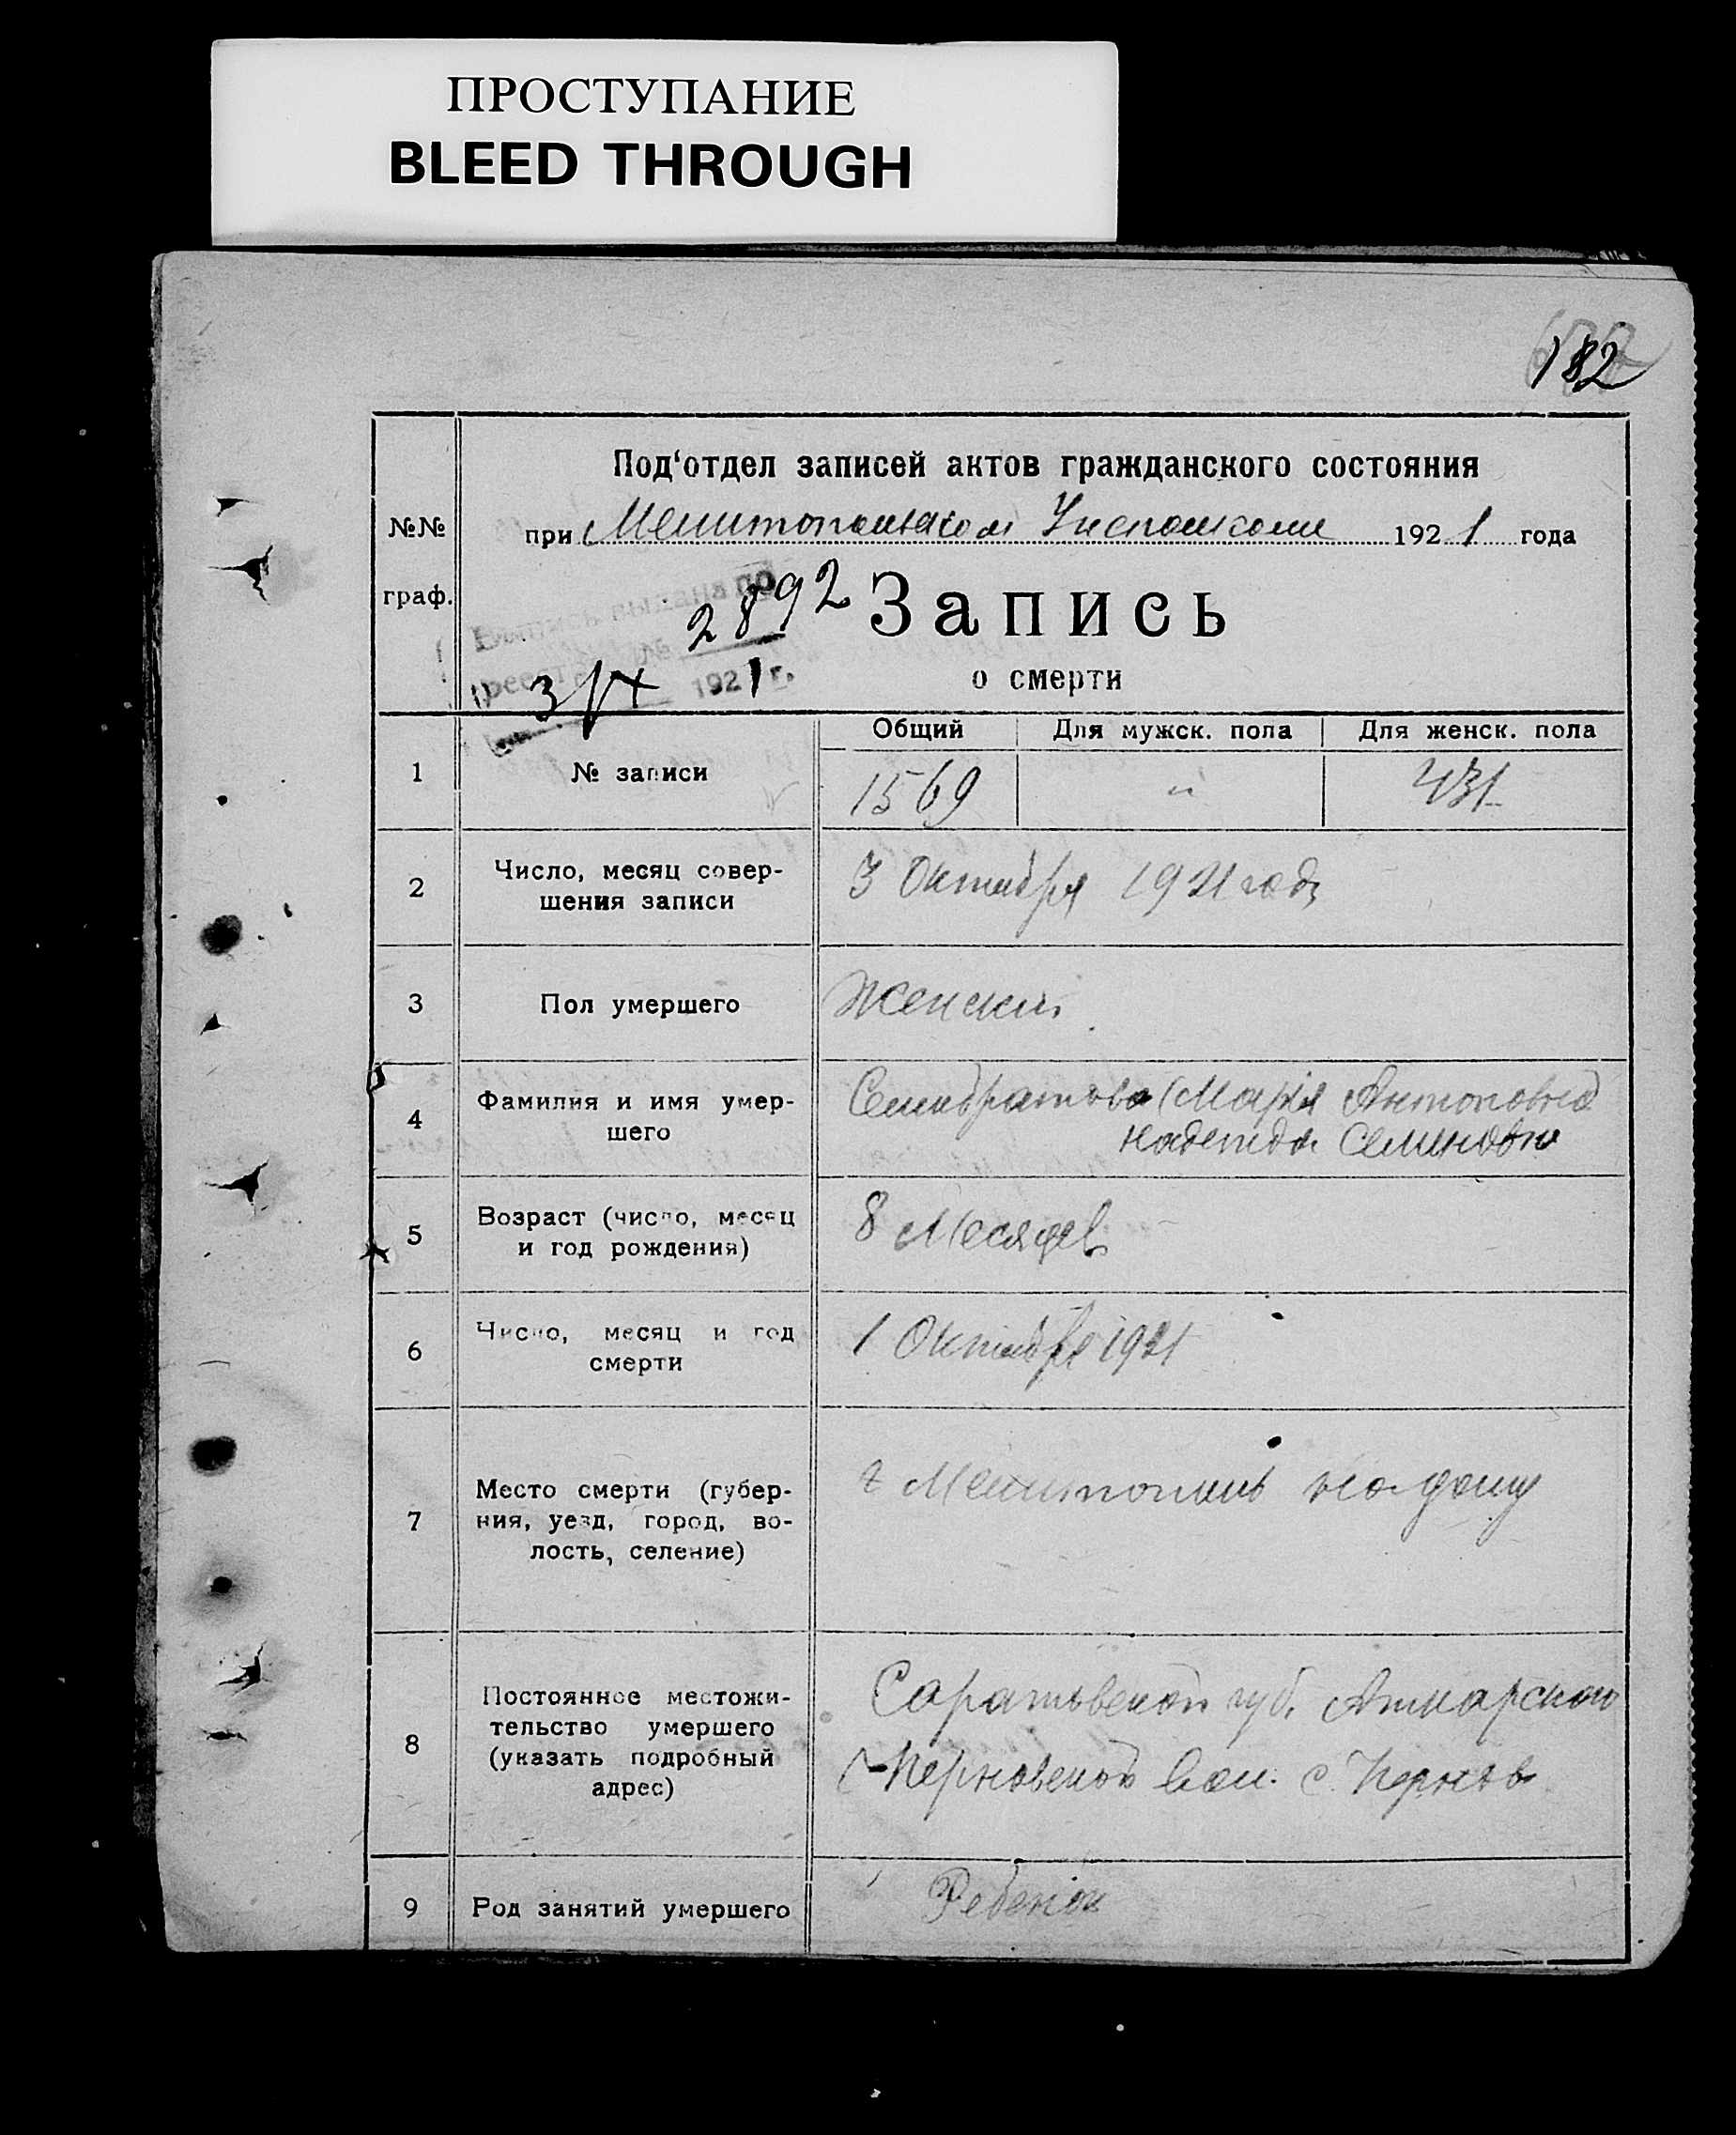 ПРОСТУПАНИЕ
BLEED THROUGH
182
Под‘отдел записей актов гражданского состояния
при Мелитопольском Уисполкоме 1921 года
№№
граф.
Выпись выдана по
реестру № 2892
3/X 1921 г.
Запись
о смерти
Общий Для мужск. пола Для женск. пола
1 № записи 1569 " 731
2 Число, месяц совер-
шения записи
3 Октября 1921 года
3 Пол умершего Женский
4 Фамилия и имя умер-
шего
Мария Антоновна
Надежда Семеновна
5 Возраст (число, месяц
и год рождения)
8 Месяцев
6 Число, месяц и год
смерти
1 Октября 1921
7 Место смерти (губер-
ния, уезд, город, во-
лость, селение)
г Мелитополь на дому
8 Постоянное местожи-
тельство умершего
(указать подробный
адрес)
Саратовской губ. Аткарского
вол. с
9 Род занятий умершего Ребенок